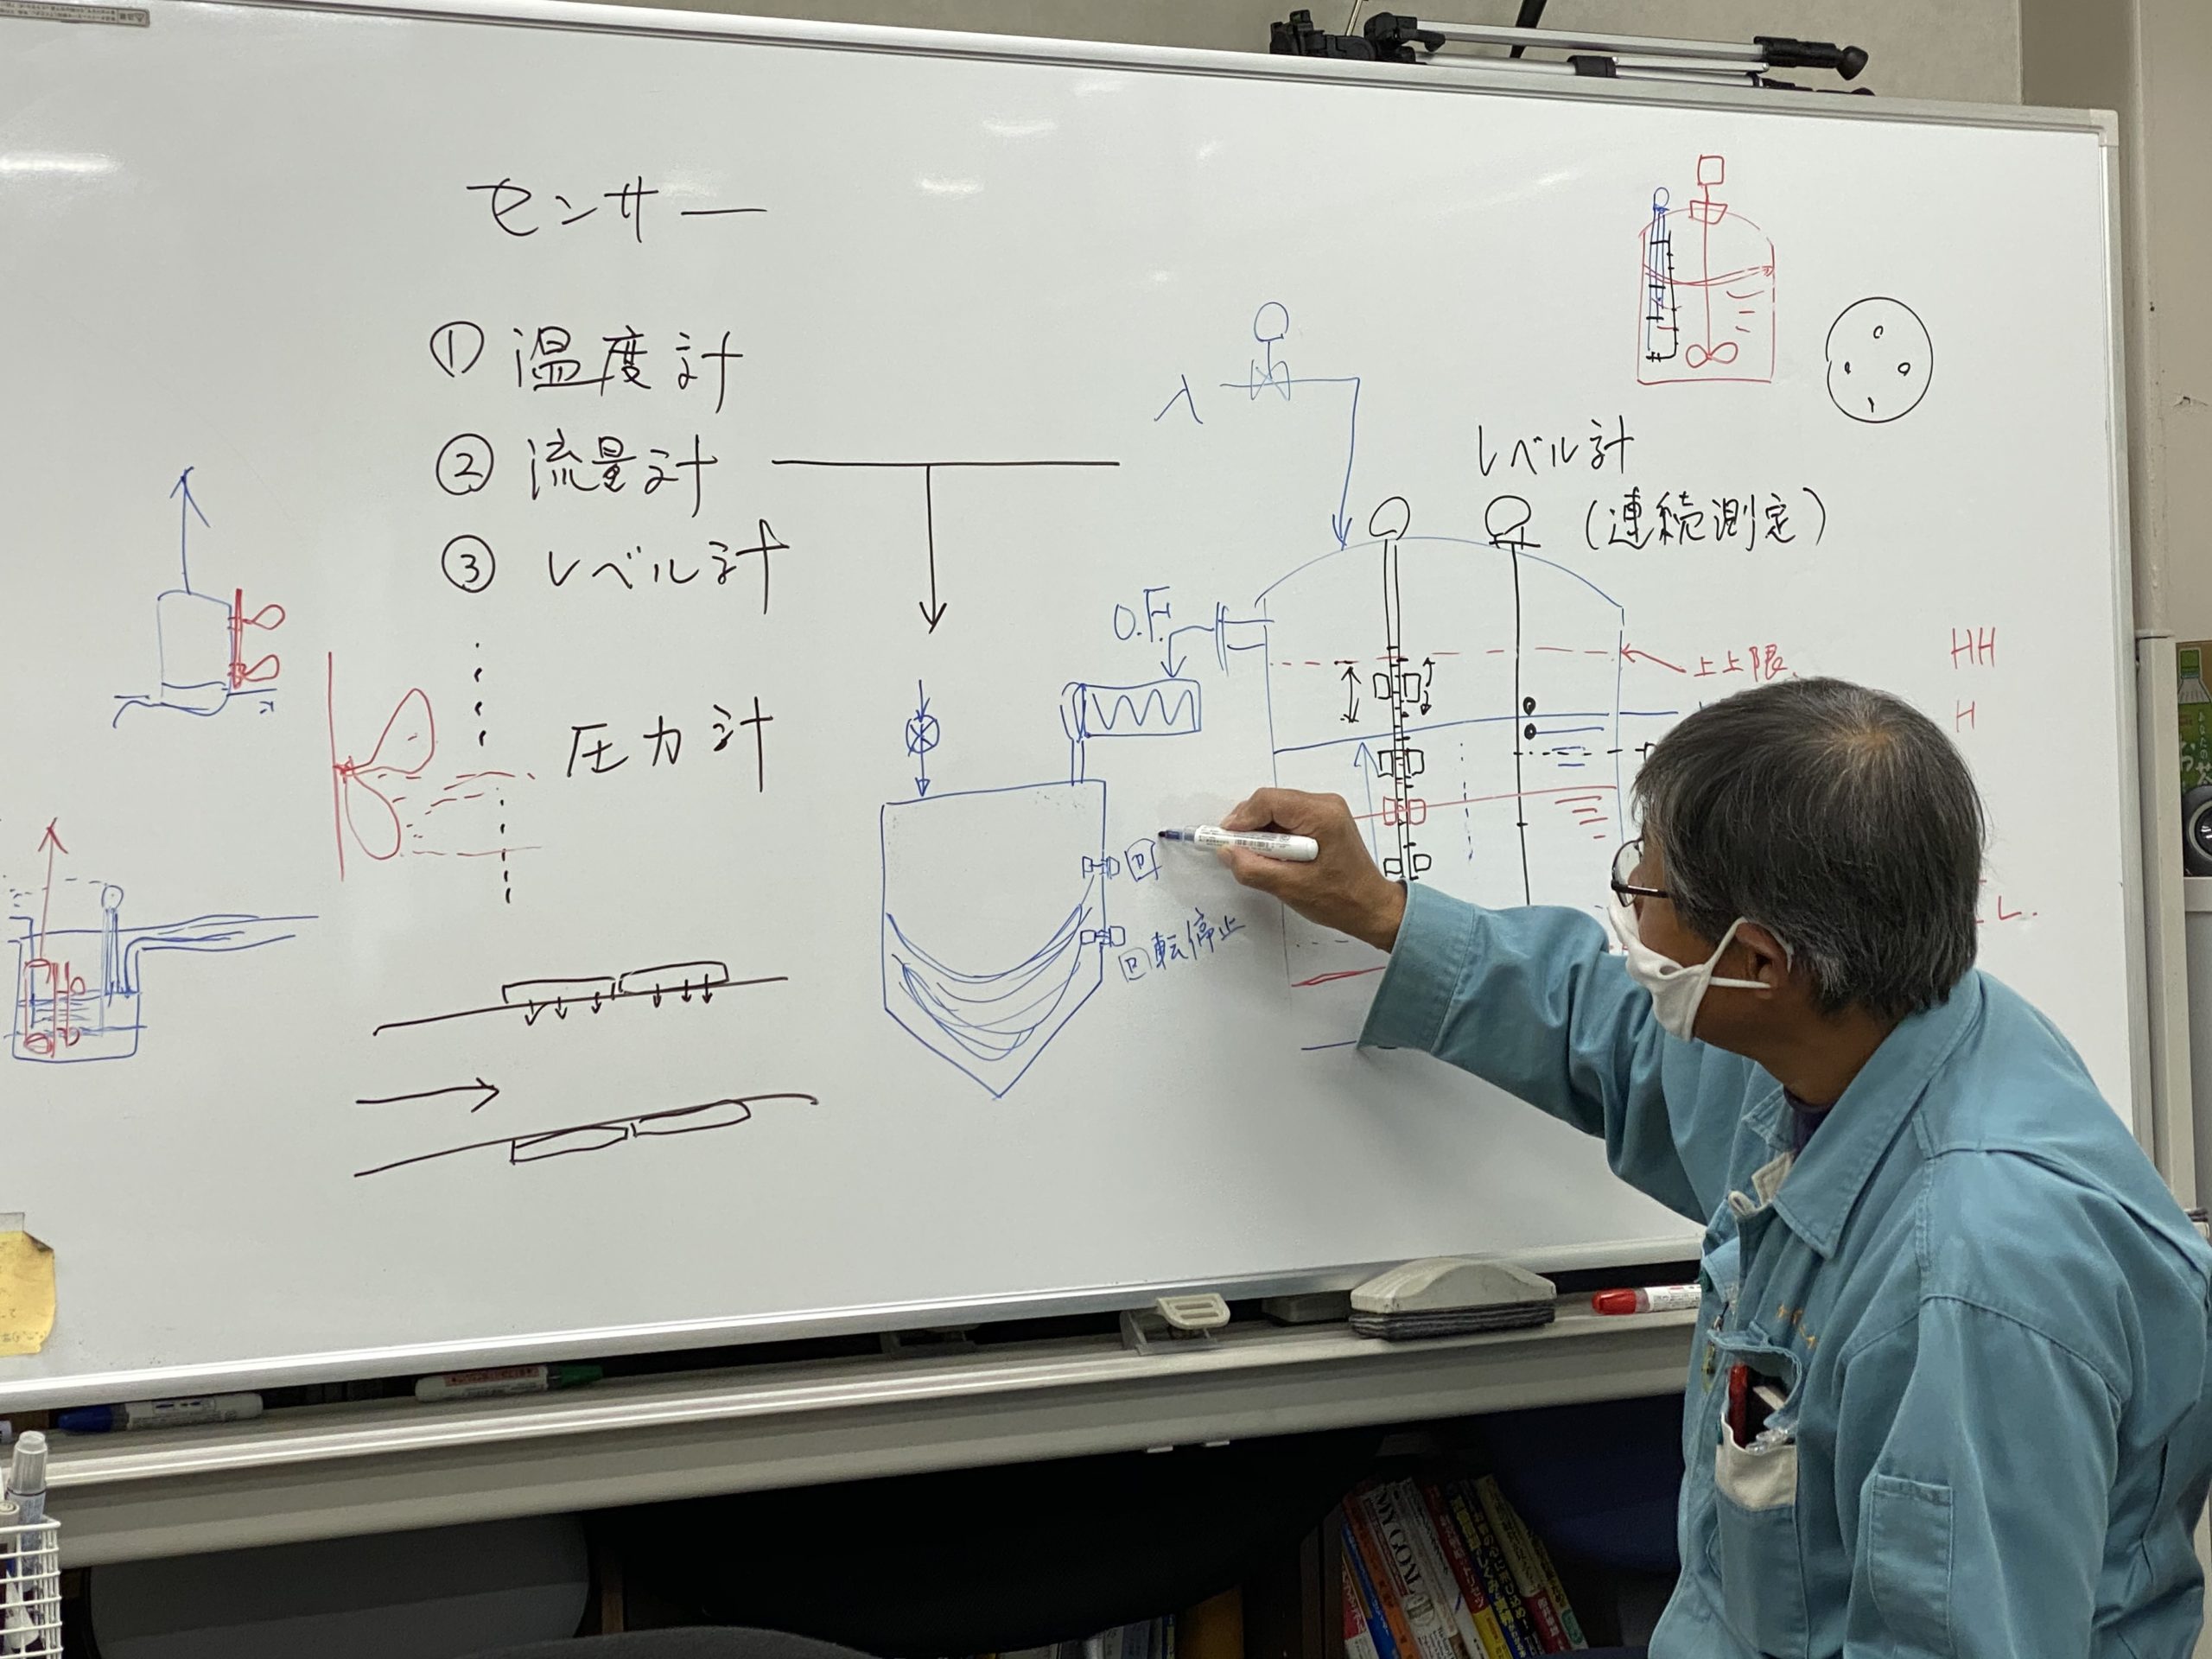 センサー
① 温度計
② 流量計
③ レベル計
圧力計
入
レベル計
(連続測定)
O.F.
上上限
HH
H
L.
回
回転停止
MY GOAL